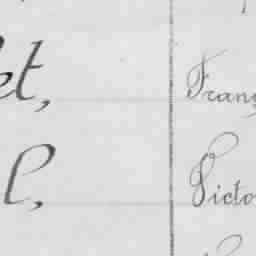 et, Franç
l, Victo